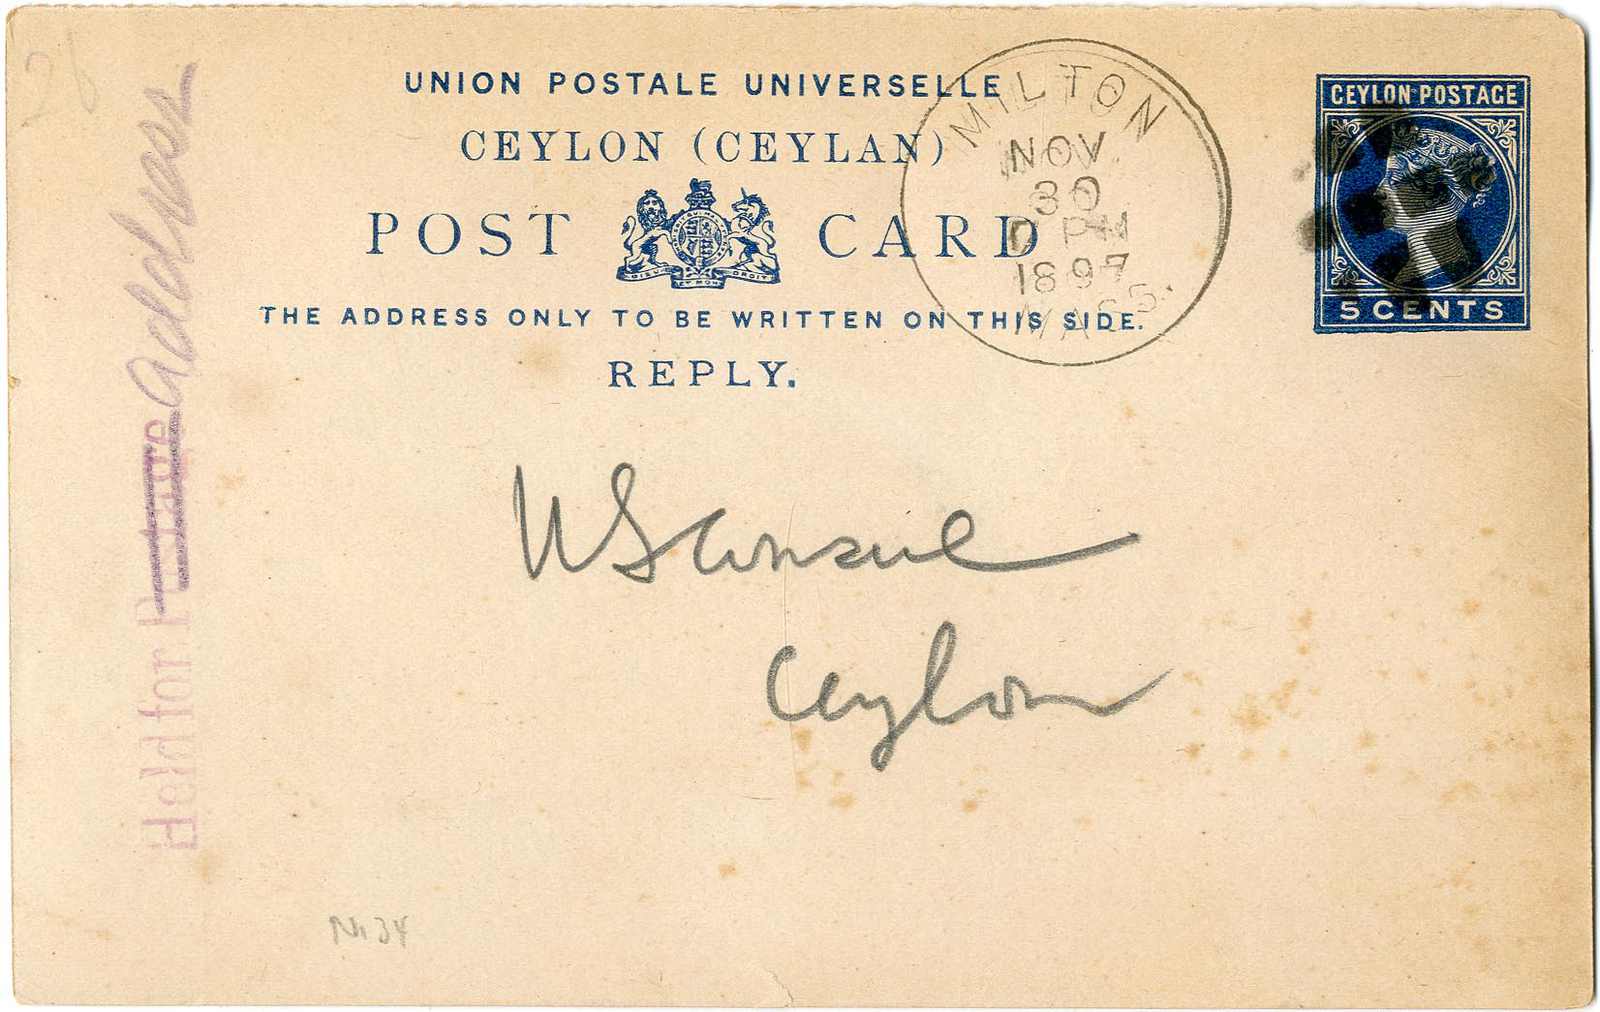 UNION POSTALE UNIVERSELLE
CEYLON (CEYLAN)
POST CARD
THE ADDRESS ONLY TO BE WRITTEN ON THIS SIDE.
REPLY.
CEYLON POSTAGE
5 CENTS
MILTON
NOV
30
PM
1897
MASS.
US Consul
Ceylon
Held for Postage address
28